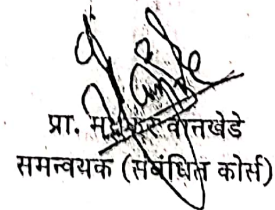 प्रा. वानखेडे
समन्वयक (संबंधित कोर्स)